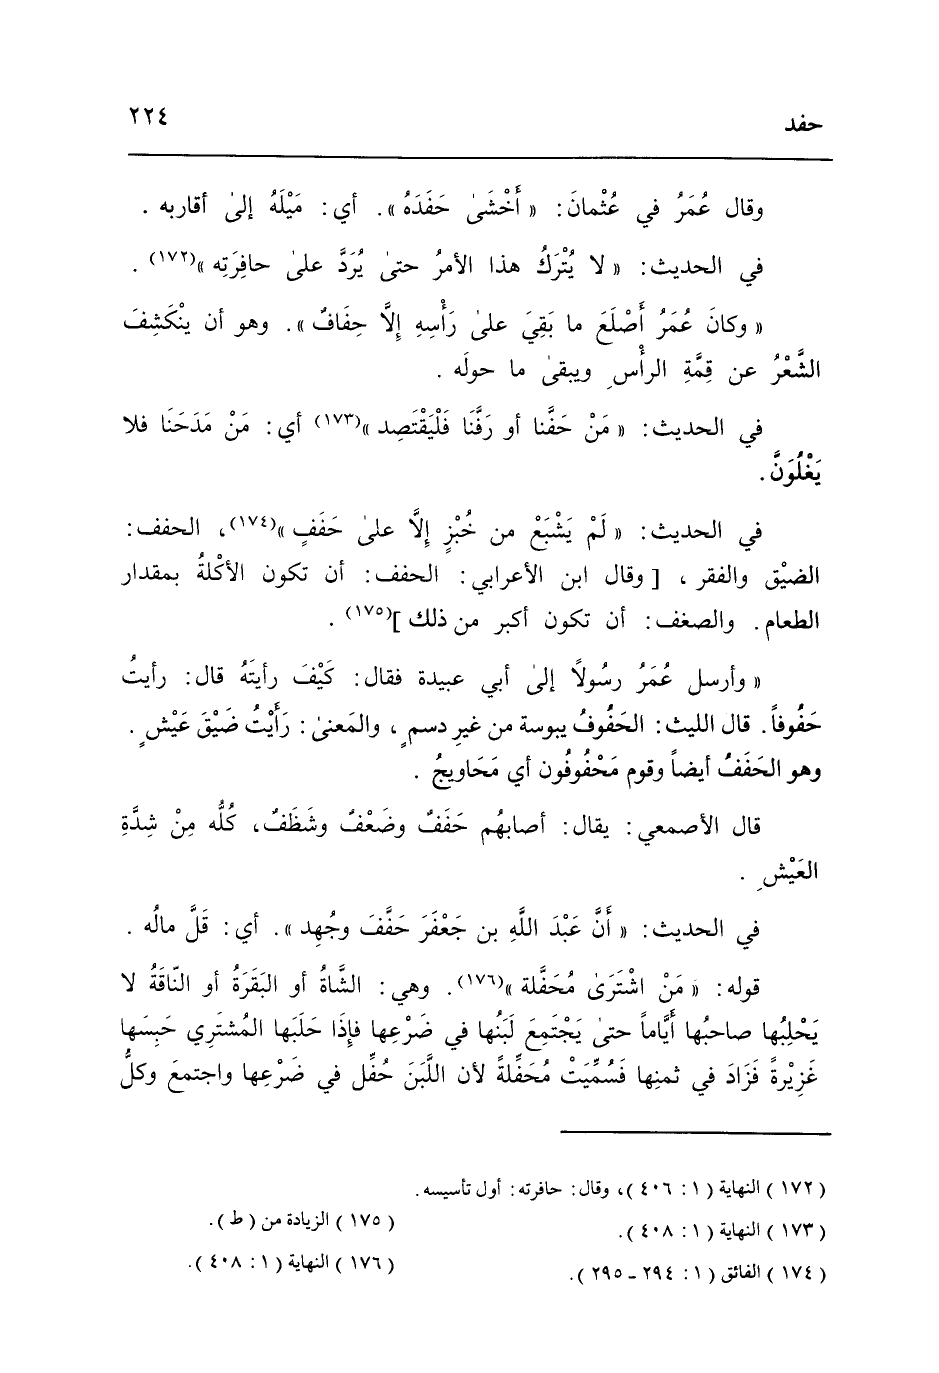 حفد
٢٢٤
وقال عُمَرُ في عُثْمانَ: « أَخْشَىٰ حَفَدَهُ ». أي: مَيْلَهُ إلىٰ أقاربه .
في الحديث: « لا يُتْرَكُ هذا الأمرُ حتىٰ يُرَدَّ علىٰ حافِرَتِه »(١٧٢) .
« وكانَ عُمَرُ أَصْلَعَ ما بَقِيَ علىٰ رَأْسِهِ إلَّا حِفَافٌ ». وهو أن ينْكَشِفَ
الشَّعْرُ عن قِمَّةِ الرأْسِ ويبقىٰ ما حولَه .
في الحديث: « مَنْ حَفَّنا أو رَفَّنَا فَلْيَقْتَصِد »(١٧٣) أي: مَنْ مَدَحَنَا فلا
يَغْلُوَنَّ.
في الحديث: « لَمْ يَشْبَعْ من خُبْزٍ إلَّا علىٰ حَفَفٍ »(١٧٤)، الحفف:
الضيْق والفقر ، [ وقال ابن الأعرابي: الحفف: أن تكون الأكْلةُ بمقدار
الطعام. والصغف: أن تكون أكبر من ذلك ](١٧٥) .
« وأرسل عُمَرُ رسُولاً إلىٰ أبي عبيدة فقال: كَيْفَ رأيتَهُ قال: رأيتُ
حَفُوفاً. قال الليث: الحَفُوفُ يبوسة من غيرِ دسمٍ ، والمَعنىٰ: رَأَيْتُ ضَيْقَ عَيْشٍ.
وهو الحَفَفُ أيضاً وقوم مَحْفُوفُون أي مَحَاويجُ .
قال الأصمعي: يقال: أصابهُم حَفَفٌ وضَعْفٌ وشَظَفٌ، كُلُّه مِنْ شِدَّةِ
العَيْشِ .
في الحديث: « أنَّ عَبْدَ اللَّهِ بن جَعْفَرَ حَفَّفَ وجُهِد ». أي: قَلَّ مالُه .
قوله: « مَنْ اشْتَرَىٰ مُحَفَّلة »(١٧٦). وهي: الشَّاةُ أو البَقَرَةُ أو النّاقَةُ لا
يَحْلِبُها صاحبُها أَيَّاماً حتىٰ يَجْتَمِعَ لَبَنُها في ضَرْعِها فإذَا حَلَبَها المُشتَرِي حَبِسَها
غَزِيْرةً فَزَادَ في ثمنِها فَسُمِّيَتْ مُحَفِّلةً لأن اللَّبَنَ حُفِّل في ضَرْعِها واجتمعَ وكلُّ
( ١٧٢ ) النهاية ( ١: ٤٠٦ )، وقال: حافرته: أول تأسيسه.
( ١٧٣ ) النهاية ( ١: ٤٠٨ ).
( ١٧٤ ) الفائق ( ١: ٢٩٤ ـ ٢٩٥ ).
( ١٧٥ ) الزيادة من ( ط ).
( ١٧٦ ) النهاية ( ١: ٤٠٨ ).